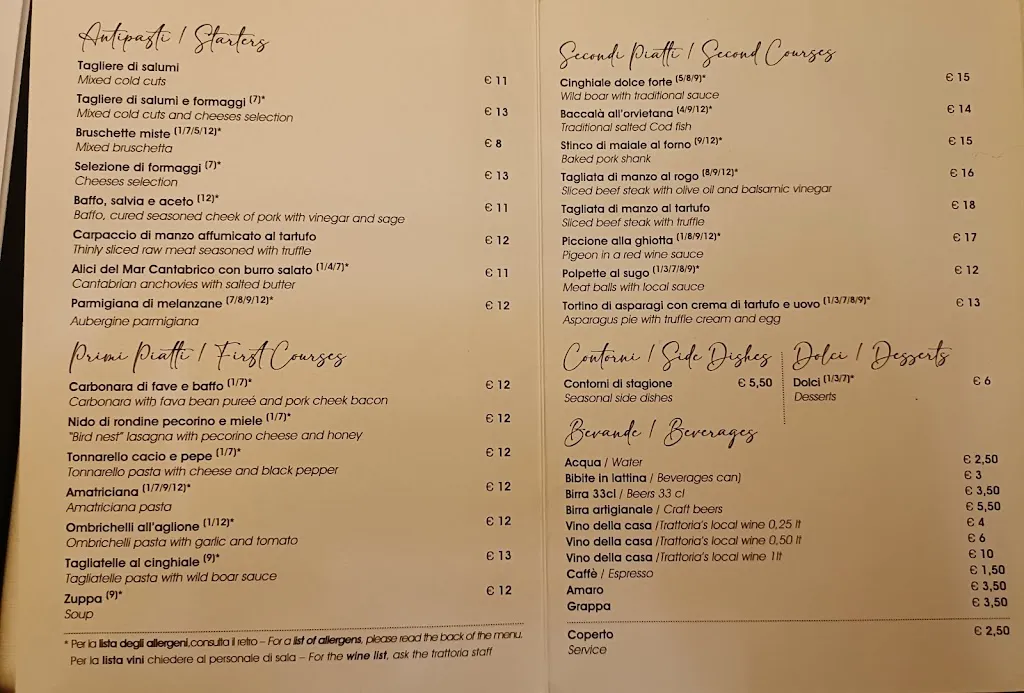 Antipasti / Starters
Tagliere di salumi
Mixed cold cuts € 11
Tagliere di salumi e formaggi (7)*
Mixed cold cuts and cheeses selection € 13
Bruschette miste (1/7/5/12)*
Mixed bruschetta € 8
Selezione di formaggi (7)*
Cheeses selection € 13
Baffo, salvia e aceto (12)*
Baffo, cured seasoned cheek of pork with vinegar and sage € 11
Carpaccio di manzo affumicato al tartufo
Thinly sliced raw meat seasoned with truffle € 12
Alici del Mar Cantabrico con burro salato (1/4/7)*
Cantabrian anchovies with salted butter € 11
Parmigiana di melanzane (7/8/9/12)* € 12
Aubergine parmigiana
Primi Piatti / First Courses
Carbonara di fave e baffo (1/7)* € 12
Carbonara with fava bean pureé and pork cheek bacon
Nido di rondine pecorino e miele (1/7)* € 12
"Bird nest" lasagna with pecorino cheese and honey
Tonnarello cacio e pepe (1/7)* € 12
Tonnarello pasta with cheese and black pepper
Amatriciana (1/7/9/12)* € 12
Amatriciana pasta
Ombrichelli all'aglione (1/12)* € 12
Ombrichelli pasta with garlic and tomato
Tagliatelle al cinghiale (9)* € 13
Tagliatelle pasta with wild boar sauce
Zuppa (9)* € 12
Soup
* Per la lista degli allergeni,consulta il retro – For a list of allergens, please read the back of the menu.
Per la lista vini chiedere al personale di sala – For the wine list, ask the trattoria staff
Secondi Piatti / Second Courses
Cinghiale dolce forte (5/8/9)* € 15
Wild boar with traditional sauce
Baccalà all'orvietana (4/9/12)* € 14
Traditional salted Cod fish
Stinco di maiale al forno (9/12)* € 15
Baked pork shank
Tagliata di manzo al rogo (8/9/12)* € 16
Sliced beef steak with olive oil and balsamic vinegar
Tagliata di manzo al tartufo € 18
Sliced beef steak with truffle
Piccione alla ghiotta (1/8/9/12)* € 17
Pigeon in a red wine sauce
Polpette al sugo (1/3/7/8/9)* € 12
Meat balls with local sauce
Tortino di asparagi con crema di tartufo e uovo (1/3/7/8/9)* € 13
Asparagus pie with truffle cream and egg
Contorni / Side Dishes
Contorni di stagione € 5,50
Seasonal side dishes
Dolci / Desserts
Dolci (1/3/7)* € 6
Desserts
Bevande / Beverages
Acqua / Water € 2,50
Bibite in lattina / Beverages can) € 3
Birra 33cl / Beers 33 cl € 3,50
Birra artigianale / Craft beers € 5,50
Vino della casa /Trattoria's local wine 0,25 lt € 4
Vino della casa /Trattoria's local wine 0,50 lt € 6
Vino della casa /Trattoria's local wine 1lt € 10
Caffè / Espresso € 1,50
Amaro € 3,50
Grappa € 3,50
Coperto € 2,50
Service